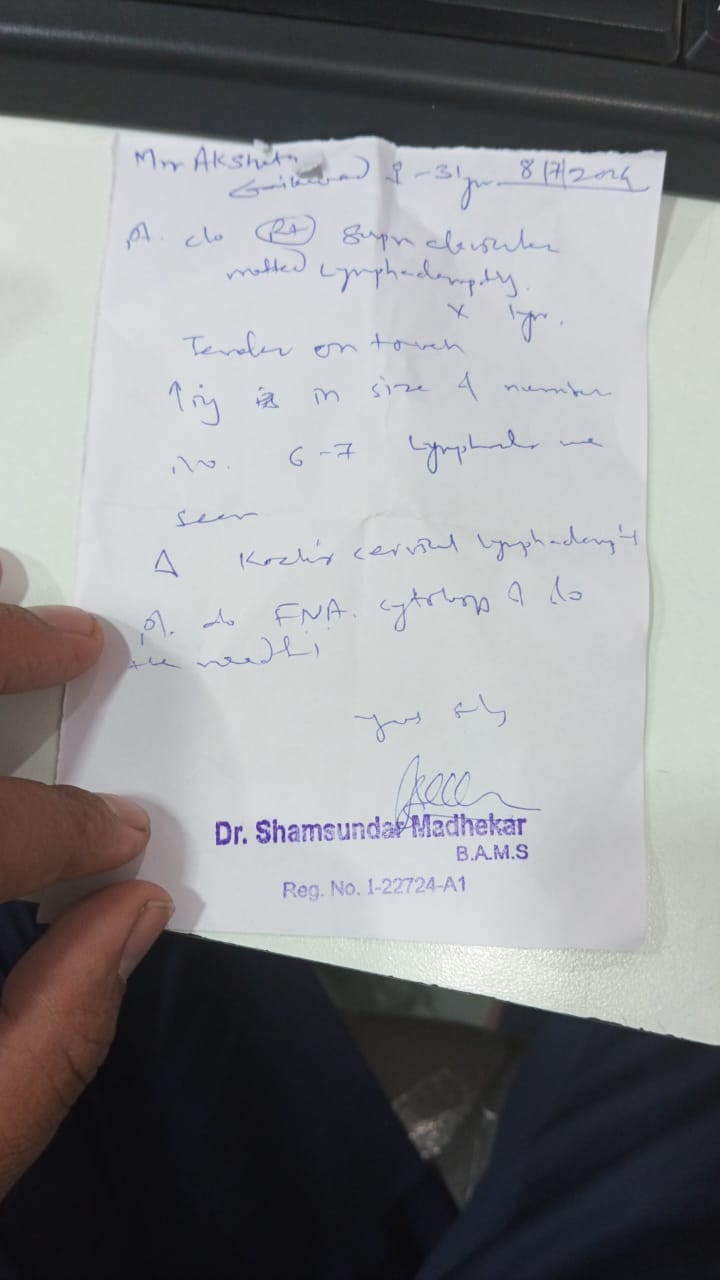 Mrs Akshata
Gaikwad ♀ -31yr 8/7/2024
pt. c/o (Rt) Supraclavicular
matted Lymphadenopathy.
x 1yr.
Tender on touch
↑ing in size & number
No. 6-7 Lymphnodes are
seen
Δ Koch's cervical lymphadenopathy
pt. do FNA. cytology & do
the needful
Yours
Dr. Shamsundar Madhekar
B.A.M.S
Reg. No. I-22724-A1